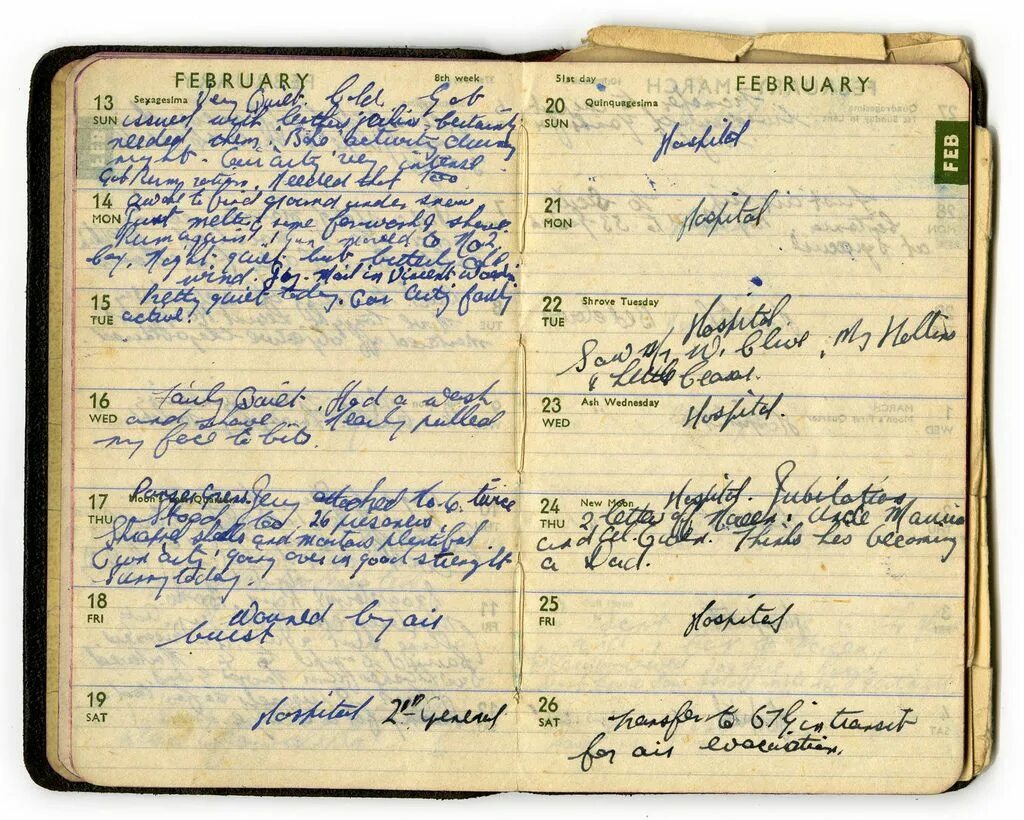 FEBRUARY 8th week
13 SUN Sexagesima Very Quiet Cold Got
issued with leather jerkins. Certainly
needed them. activity during
night. Our arty very intense
Got Rum ration. Needed that too
14 MON awoke to find ground under snow
just melting now forward shared
Rum again! 1 gun moved to
bay. Night quiet but bitterly cold
wind. Joy. Mail in Vincent
15 TUE Pretty quiet today. Our Arty fairly
active.
16 WED Fairly Quiet. Had a wash
and shave. Nearly pulled
my face to bits.
17 THU Moon's Last Quarter attacked twice
26 prisoners.
shells and mortars plentiful
Own arty going over in good strength
Sunny today.
18 FRI Wouned by air
burst
19 SAT Hospital 2nd General
51st day FEBRUARY
20 SUN Quinquagesima
Hospital
21 MON Hospital
22 TUE Shrove Tuesday
Hospital
Saw W. Clive, Mj
& Little
23 WED Ash Wednesday
Hospital.
24 THU New Moon Hospital. Jubilation
2 letters Uncle
and Thinks hes becoming
a Dad.
25 FRI Hospital
26 SAT Transfer to 67 G in transit
for air evacuation.
FEB